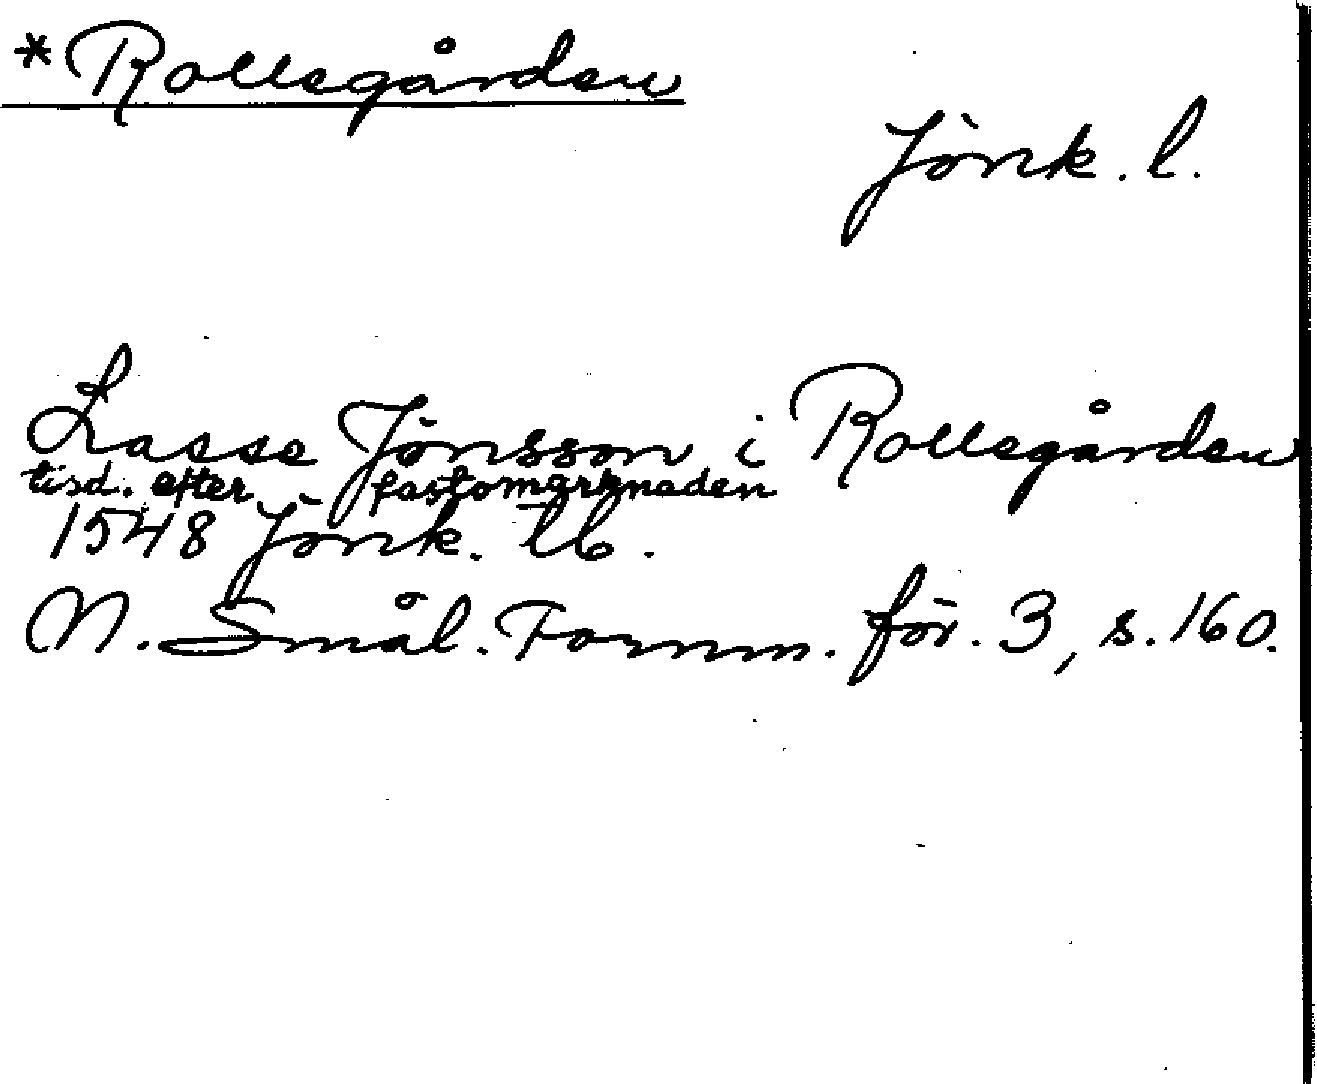 *Rollsgården
Jönk. l.
Lasse Jönsson i Rollsgården
tisd. efter fastomarknaden
1548 Jönk. tb.
N. Smål. Fornm. för. 3, s. 160.